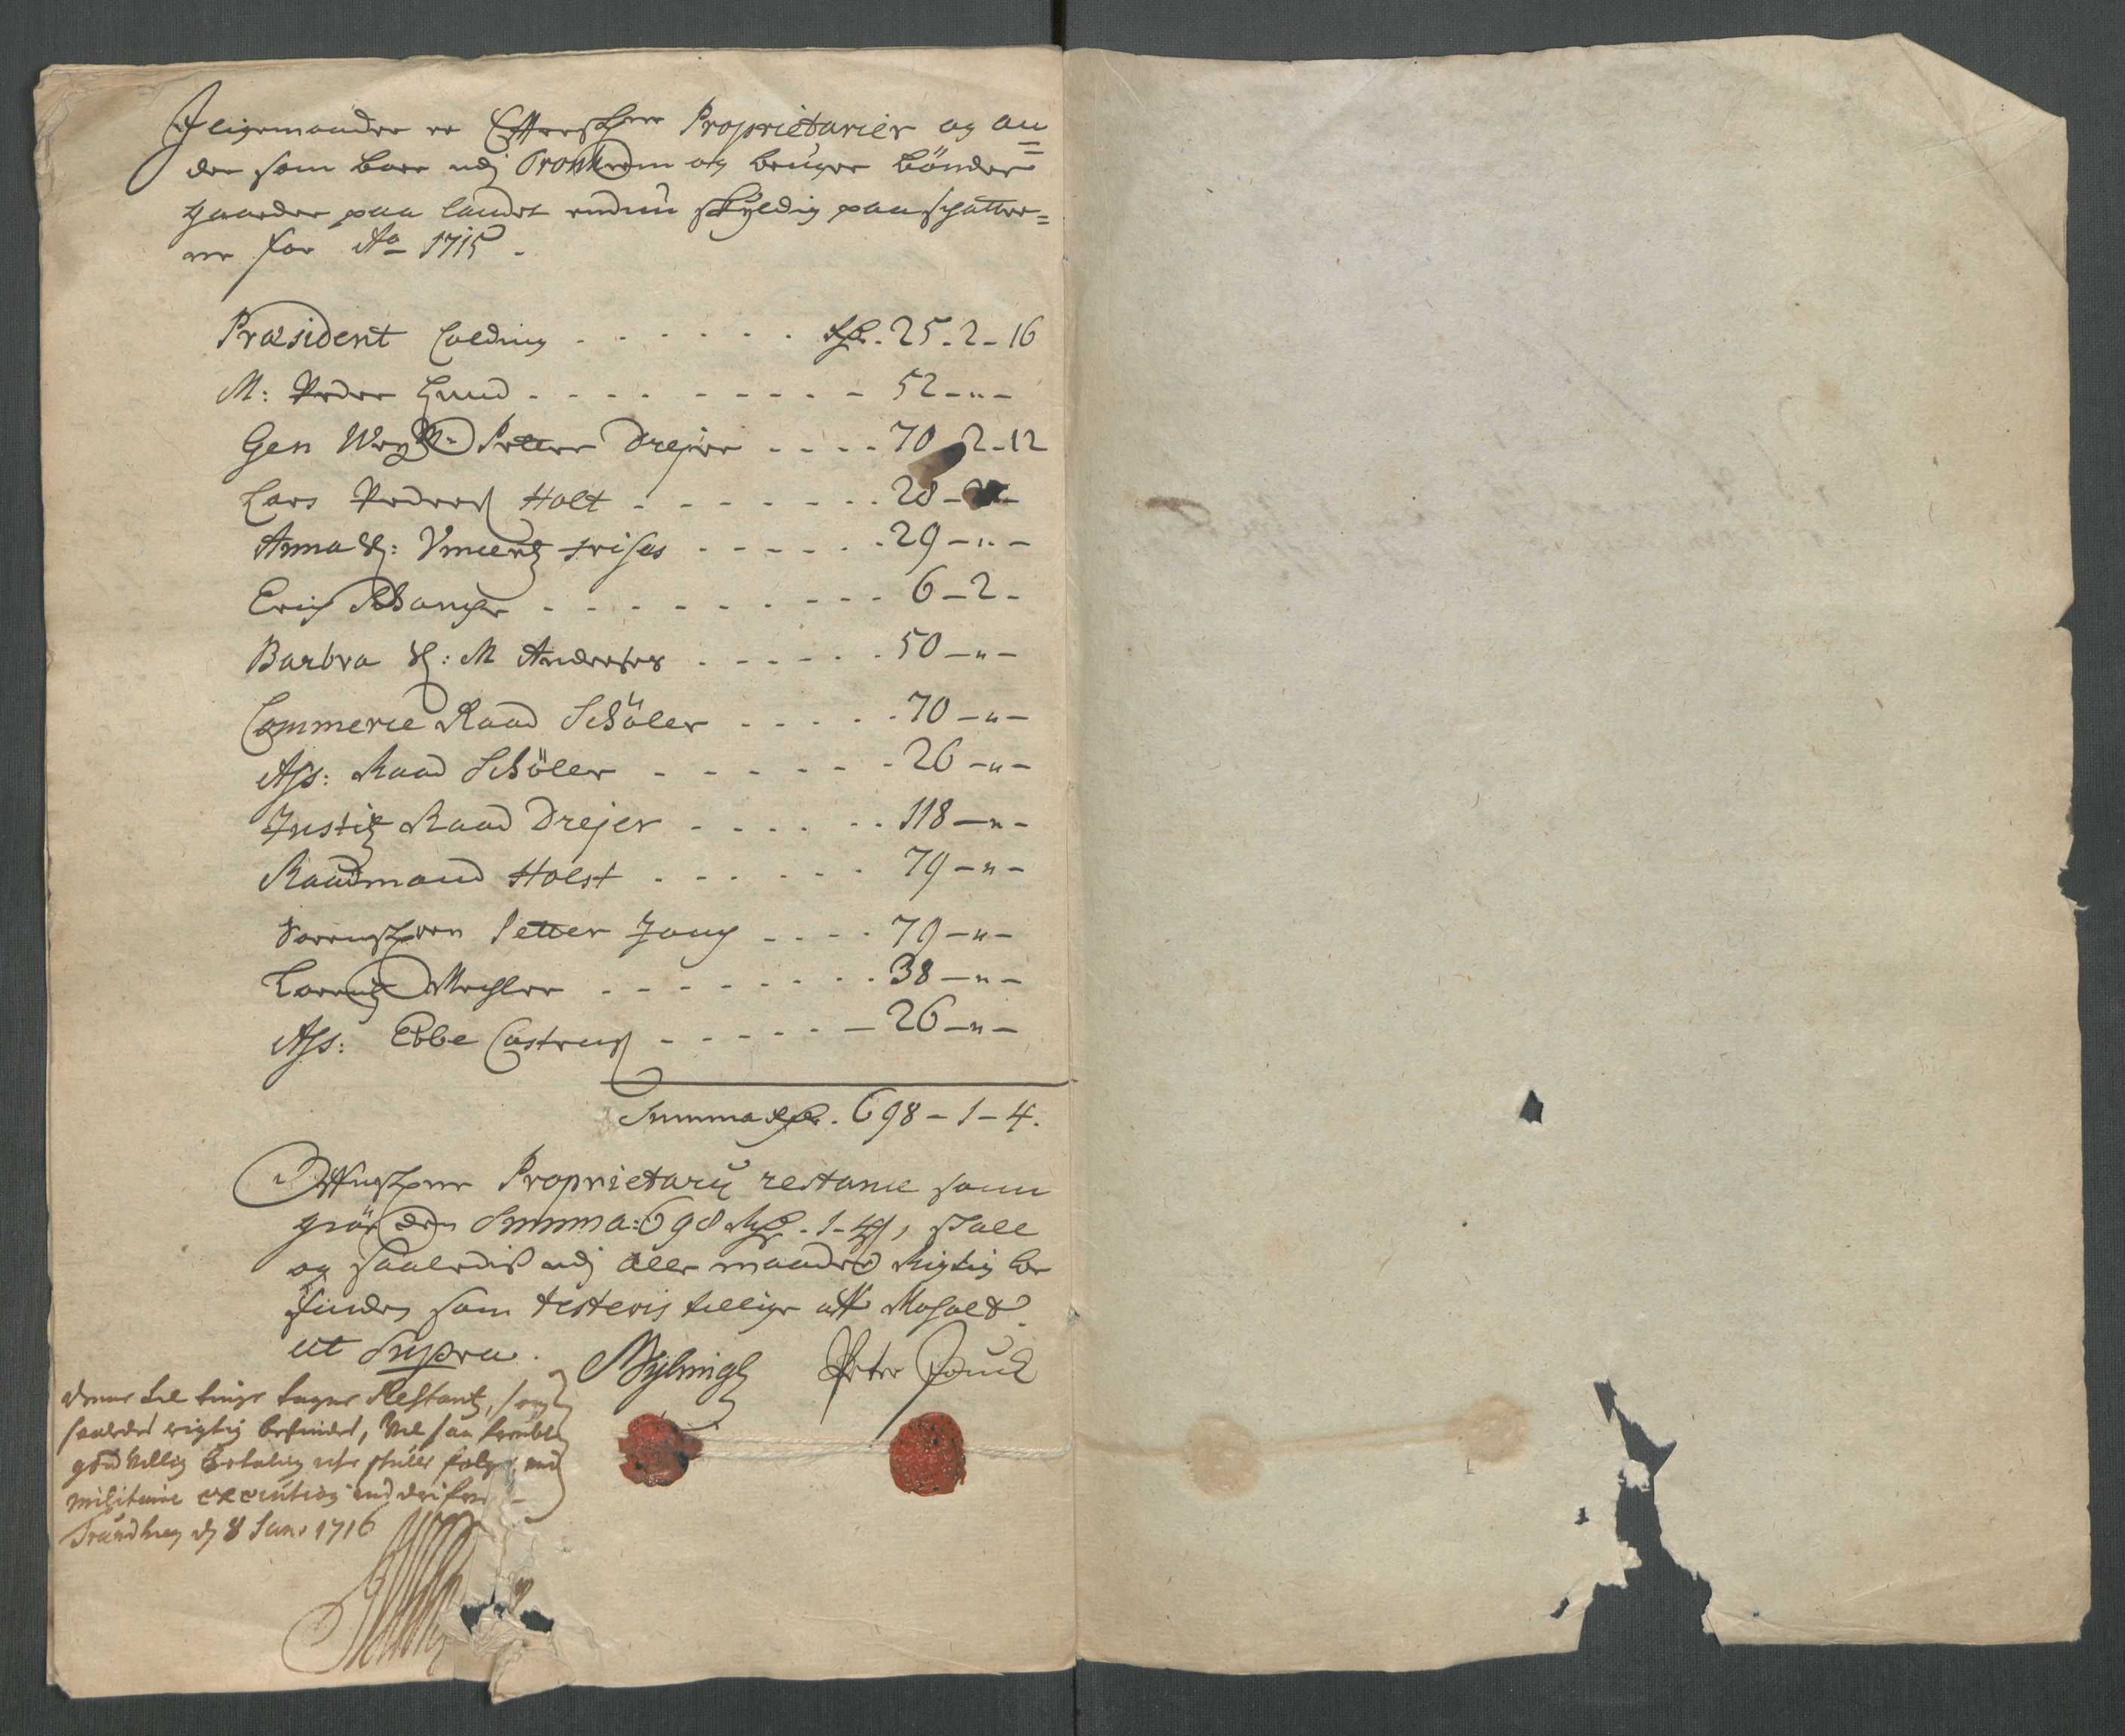 Iligemaader er Effterschrne Proprietarier og an=
dre som boer udj Tronhiem og bruger bönder
gaarder paa landet endnu skÿldig paa schatter=
ne for Ao 1715.
Præsident Colding - - - - - - - 25-2-16
M: Peder Hund - - - - - - - - - 52-"-
Gen Weÿ Mr Petter Drejer - - - - 70-2-12
Lars Pederß Holt - - - - - - - 28-
Anna S: Vincentz frises - - - - - - 29-"-
Erig - - - - - - - - - 6-2-
Barbra S: M Anderses - - - - - - 50-"-
Commerce Raad Schöler - - - - - 70-"-
Ass: Raad Schöler - - - - - - 26-"-
Justitz Raad Drejer - - - - - - 118-"-
Raadmand Holst - - - - - - 79-"-
Petter Jouch - - - - 79-"-
Lorentz Mechler - - - - - - - - 38-"-
Ass: Ebbe Castenß - - - - - - 26-"-
Summa 698-1-4.
Forschrne Proprietarij restance som
giör den Summa: 698 -1-4 s, skall
og saalediß udj alle maader Rigtig be
findes som testeris tillige aff
ut Supra.
Peter Jouch
Denne til tinge tagne Restantz, som
saaledes rigtig befindes, Vil saa frembt
godvillig betaling iche skulle følge, med
militairie execution inddrifves
Trundhiem d 8 Jan: 1716